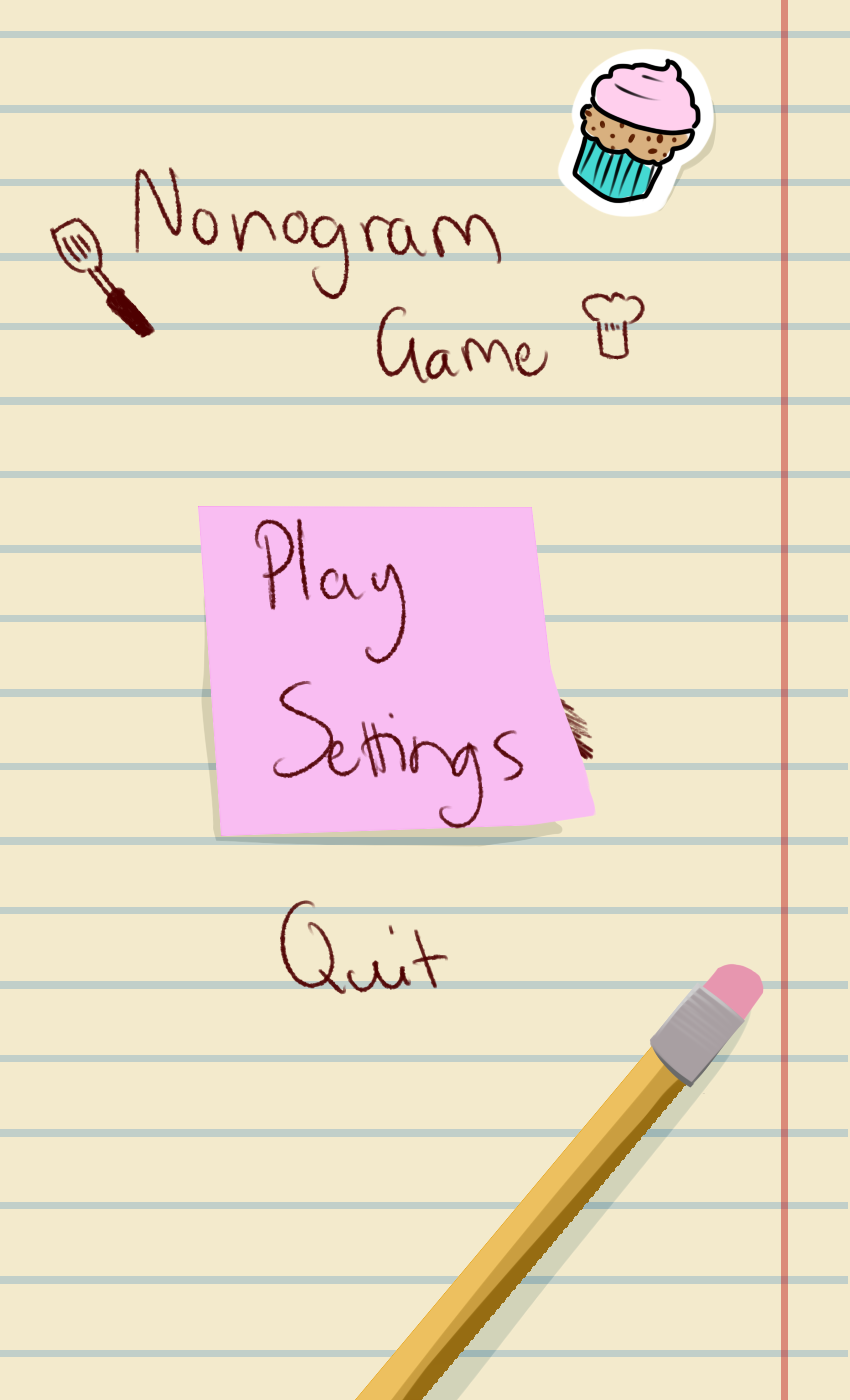 Nonogram
Game
Play
Settings
Quit